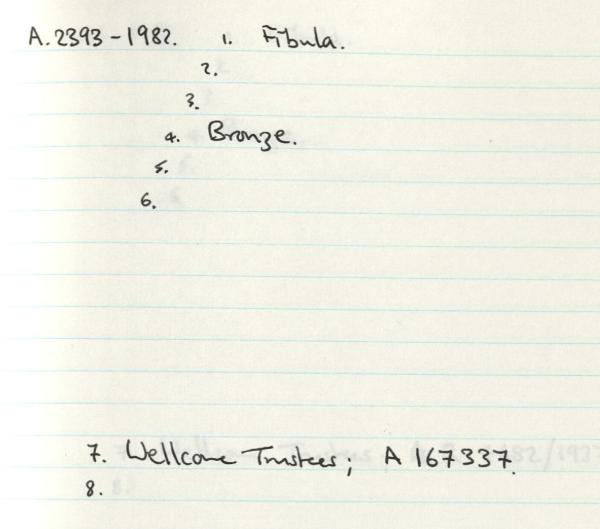 A.2393-1982. 1. Fibula.
2.
3.
4. Bronze.
5.
6.
7. Wellcome Trustees; A 167337.
8.